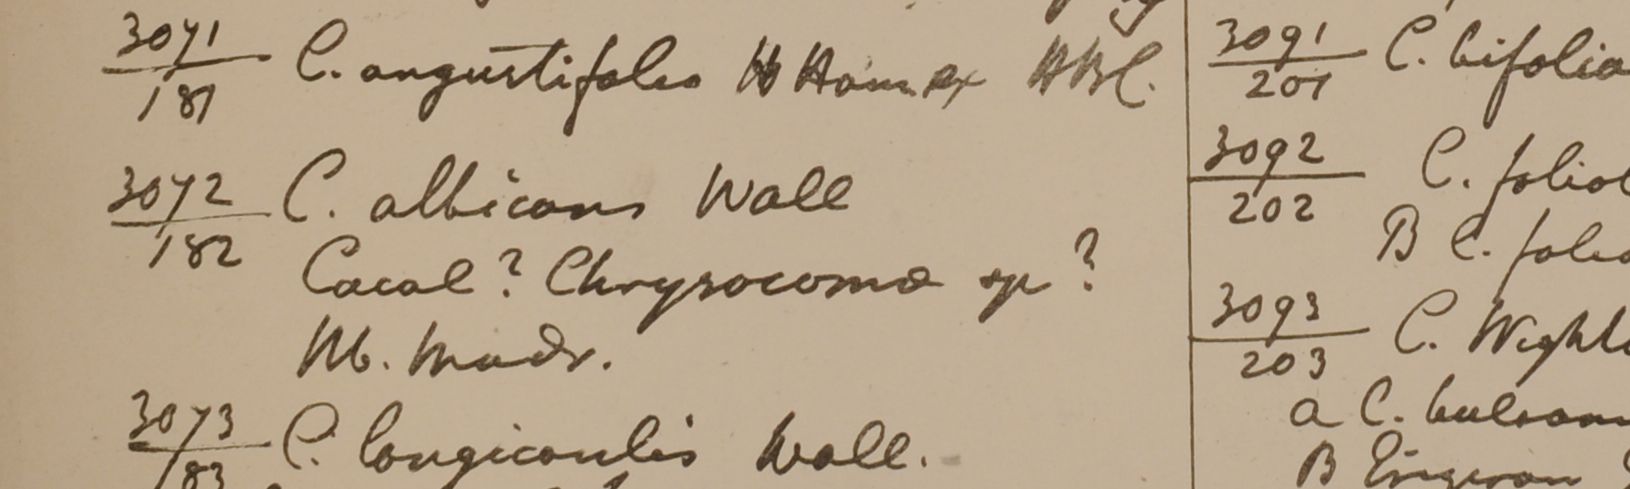 3071/181 C. angustifolia H Ham ex HBC.
3072/182 C. albicans Wall
Cacal? Chrysocoma sp?
Hb. Madr.
3073/183 C. longicaulis Wall.
3091/201 C. bifolia
3092/202 C. foliol
B C. folio
3093/203 C. Wight
a C. balsam
B Erigeron